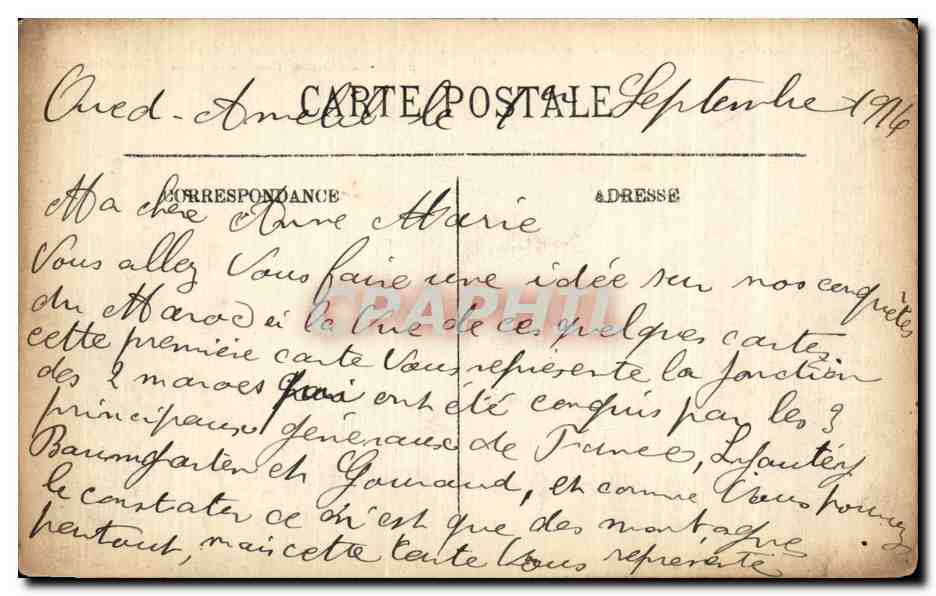 CARTE POSTALE
Oued-Amelil le 1er Septembre 1914
CORRESPONDANCE ADRESSE
Ma chère Anne Marie
Vous allez Vous faire une idée sur nos conquêtes
du Maroc à la Vue de ces quelques cartes
cette première carte Vous représente la jonction
des 2 maroc qui ont été conquis par les 3
principaux généraux de France, Lyautey
Baumgarten et Gouraud, et comme Vous pourrez
le constater ce n'est que des montagnes
partout, mais cette carte Vous représente
CPAPHIL